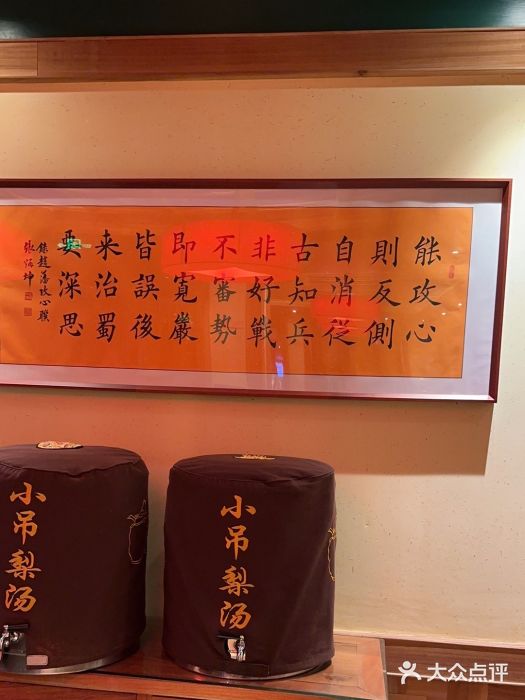 能攻心
則反側
自消從
古知兵
非好戰
不審勢
即寬嚴
皆誤後
来治蜀
要深思
錄趙藩攻心聯
小吊梨汤
小吊梨汤
大众点评